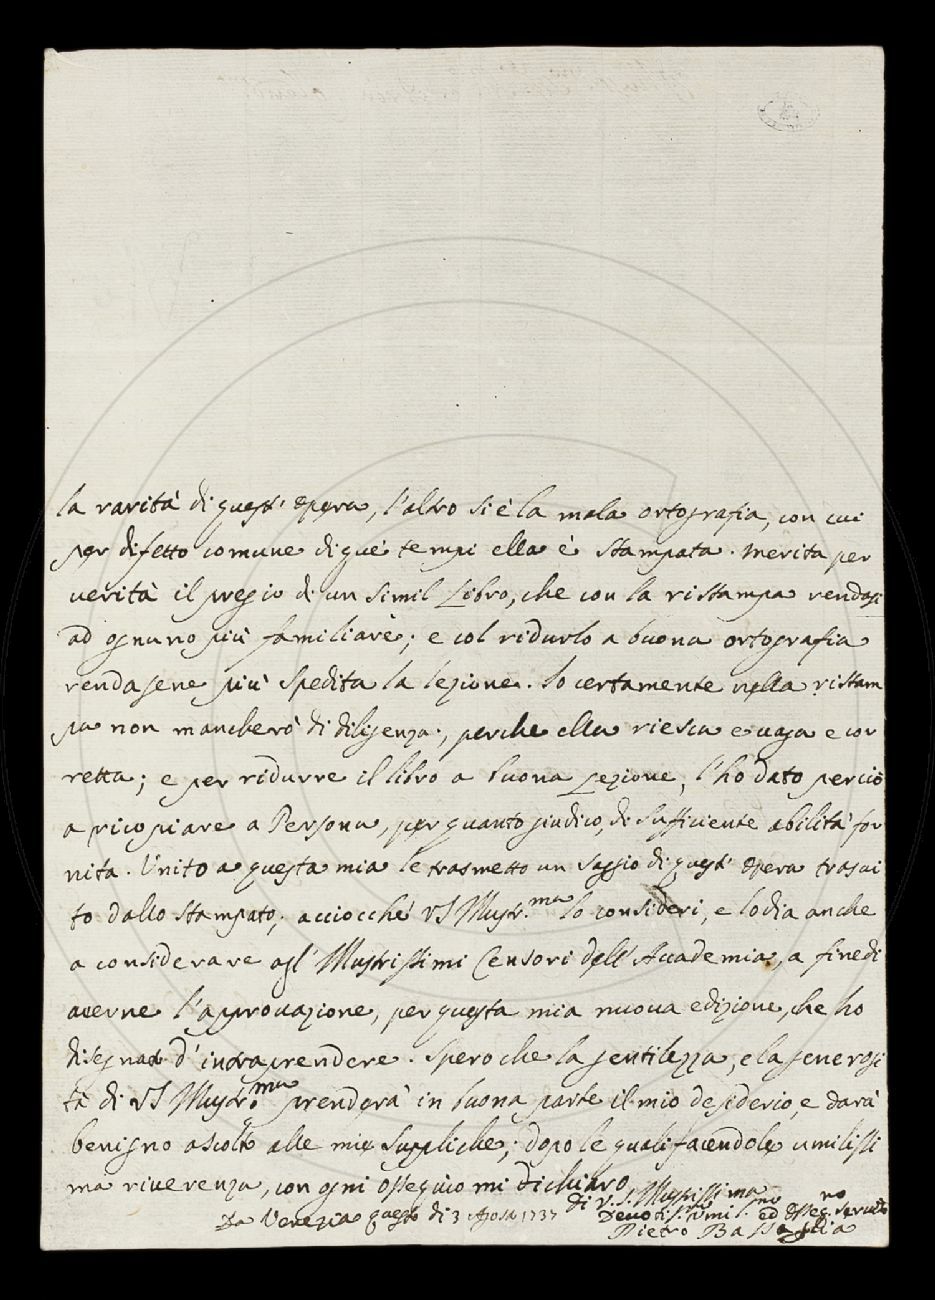 la rarità di quest' opera, l'altro si è la mala ortografia, con cui
per difetto comune di què tempi ella è stampata. Merita per
verità il pregio di un simil Libro, che con la ristampa rendasi
ad ognuno più familiare; e col ridurlo a buona ortografia
rendasene più spedita la lezione. Io certamente nella ristam
pa non mancherò di diligenza, perchè ella riesca e vaga e cor
retta; e per ridurre il libro a buona Lezione, l'ho dato perciò
a ricopiare a Persona, per quanto giudico, di sufficiente abilità for
nita. Unito a questa mia le trasmetto un saggio di quest' opera trascrit
to dallo stampato, acciocchè VS Illustr.ma lo consideri, e lo dia anche
a considerare agl' Illustrissimi Censori dell' Accademia, a fine di
averne l'approvazione, per questa mia nuova edizione, che ho
disegnato d'intraprendere. Spero che la gentilezza, e la generosi
tà di VS Illustr.ma prenderà in buona parte il mio desiderio, e darà
benigno ascolto alle mie suppliche; dopo le quali facendole umilissi
ma riverenza, con ogni ossequio mi dichiaro
di V. S. Illustrissima
Da Venezia questo dì 3 Agosto 1737
Devotiss.mo Umil.mo ed osseq.no Servitore
Pietro Bassaglia